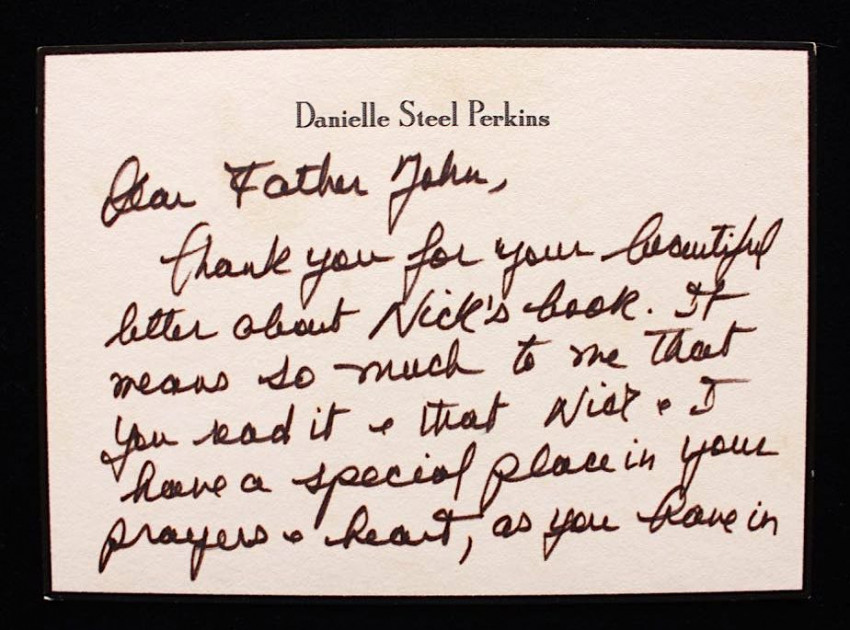 Danielle Steel Perkins
Dear Father John,
Thank you for your beautiful
letter about Nick's book. It
means so much to me that
you read it & that Nick & I
have a special place in your
prayers & heart, as you have in